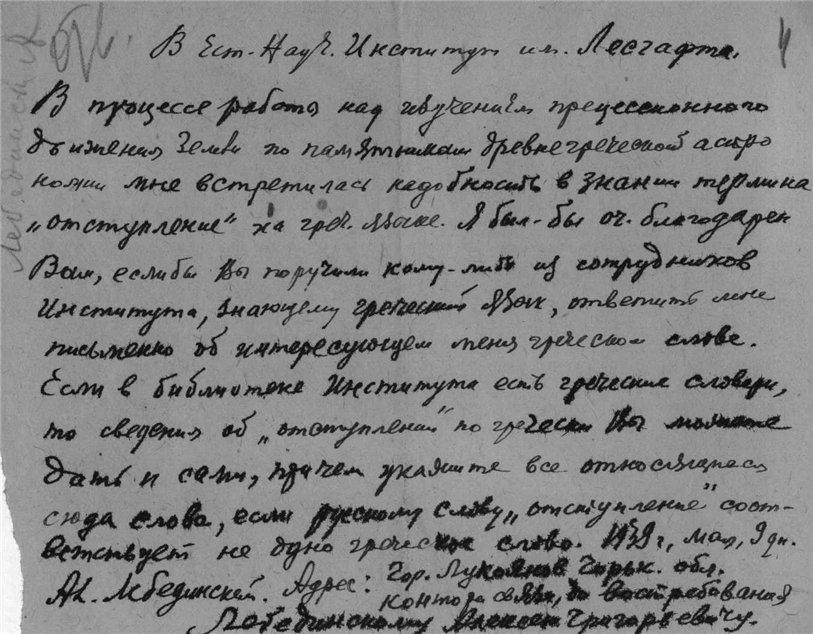 В Ест.-Науч. Институт им. Лесгафта.
4
В процессе работы над изучением прецессионного
движения Земли по памятникам древнегреческой астро
номии мне встретилась надобность в знании термина
„отступление" на греч. языке. Я был-бы оч. благодарен
Вам, если бы Вы поручили кому-либо из сотрудников
Института, знающему греческий язык, ответить мне
письменно об интересующем меня греческом слове.
Если в библиотеке Института есть греческие словари,
то сведения об „отступлении" по гречески Вы можете
дать и сами, причем укажите все относящиеся
сюда слова, если русскому слову „отступление" соот-
ветствует не одно греческое слово. 1939 г., мая, 9 дн.
Ал. Лебединский. Адрес: Гор. Лукоянов Горьк. обл.
контора связи, до востребования
Лебединскому Алексею Григорьевичу.
Лебединский